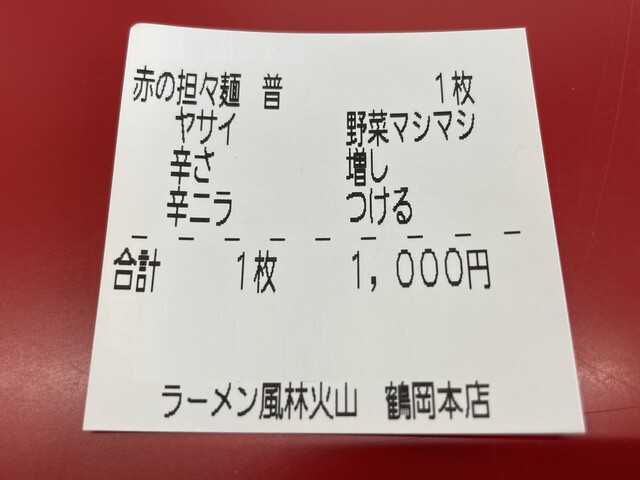 赤の担々麺 普 1枚
ヤサイ 野菜マシマシ
辛さ 増し
辛ニラ つける
合計 1枚 1,000円
ラーメン風林火山 鶴岡本店